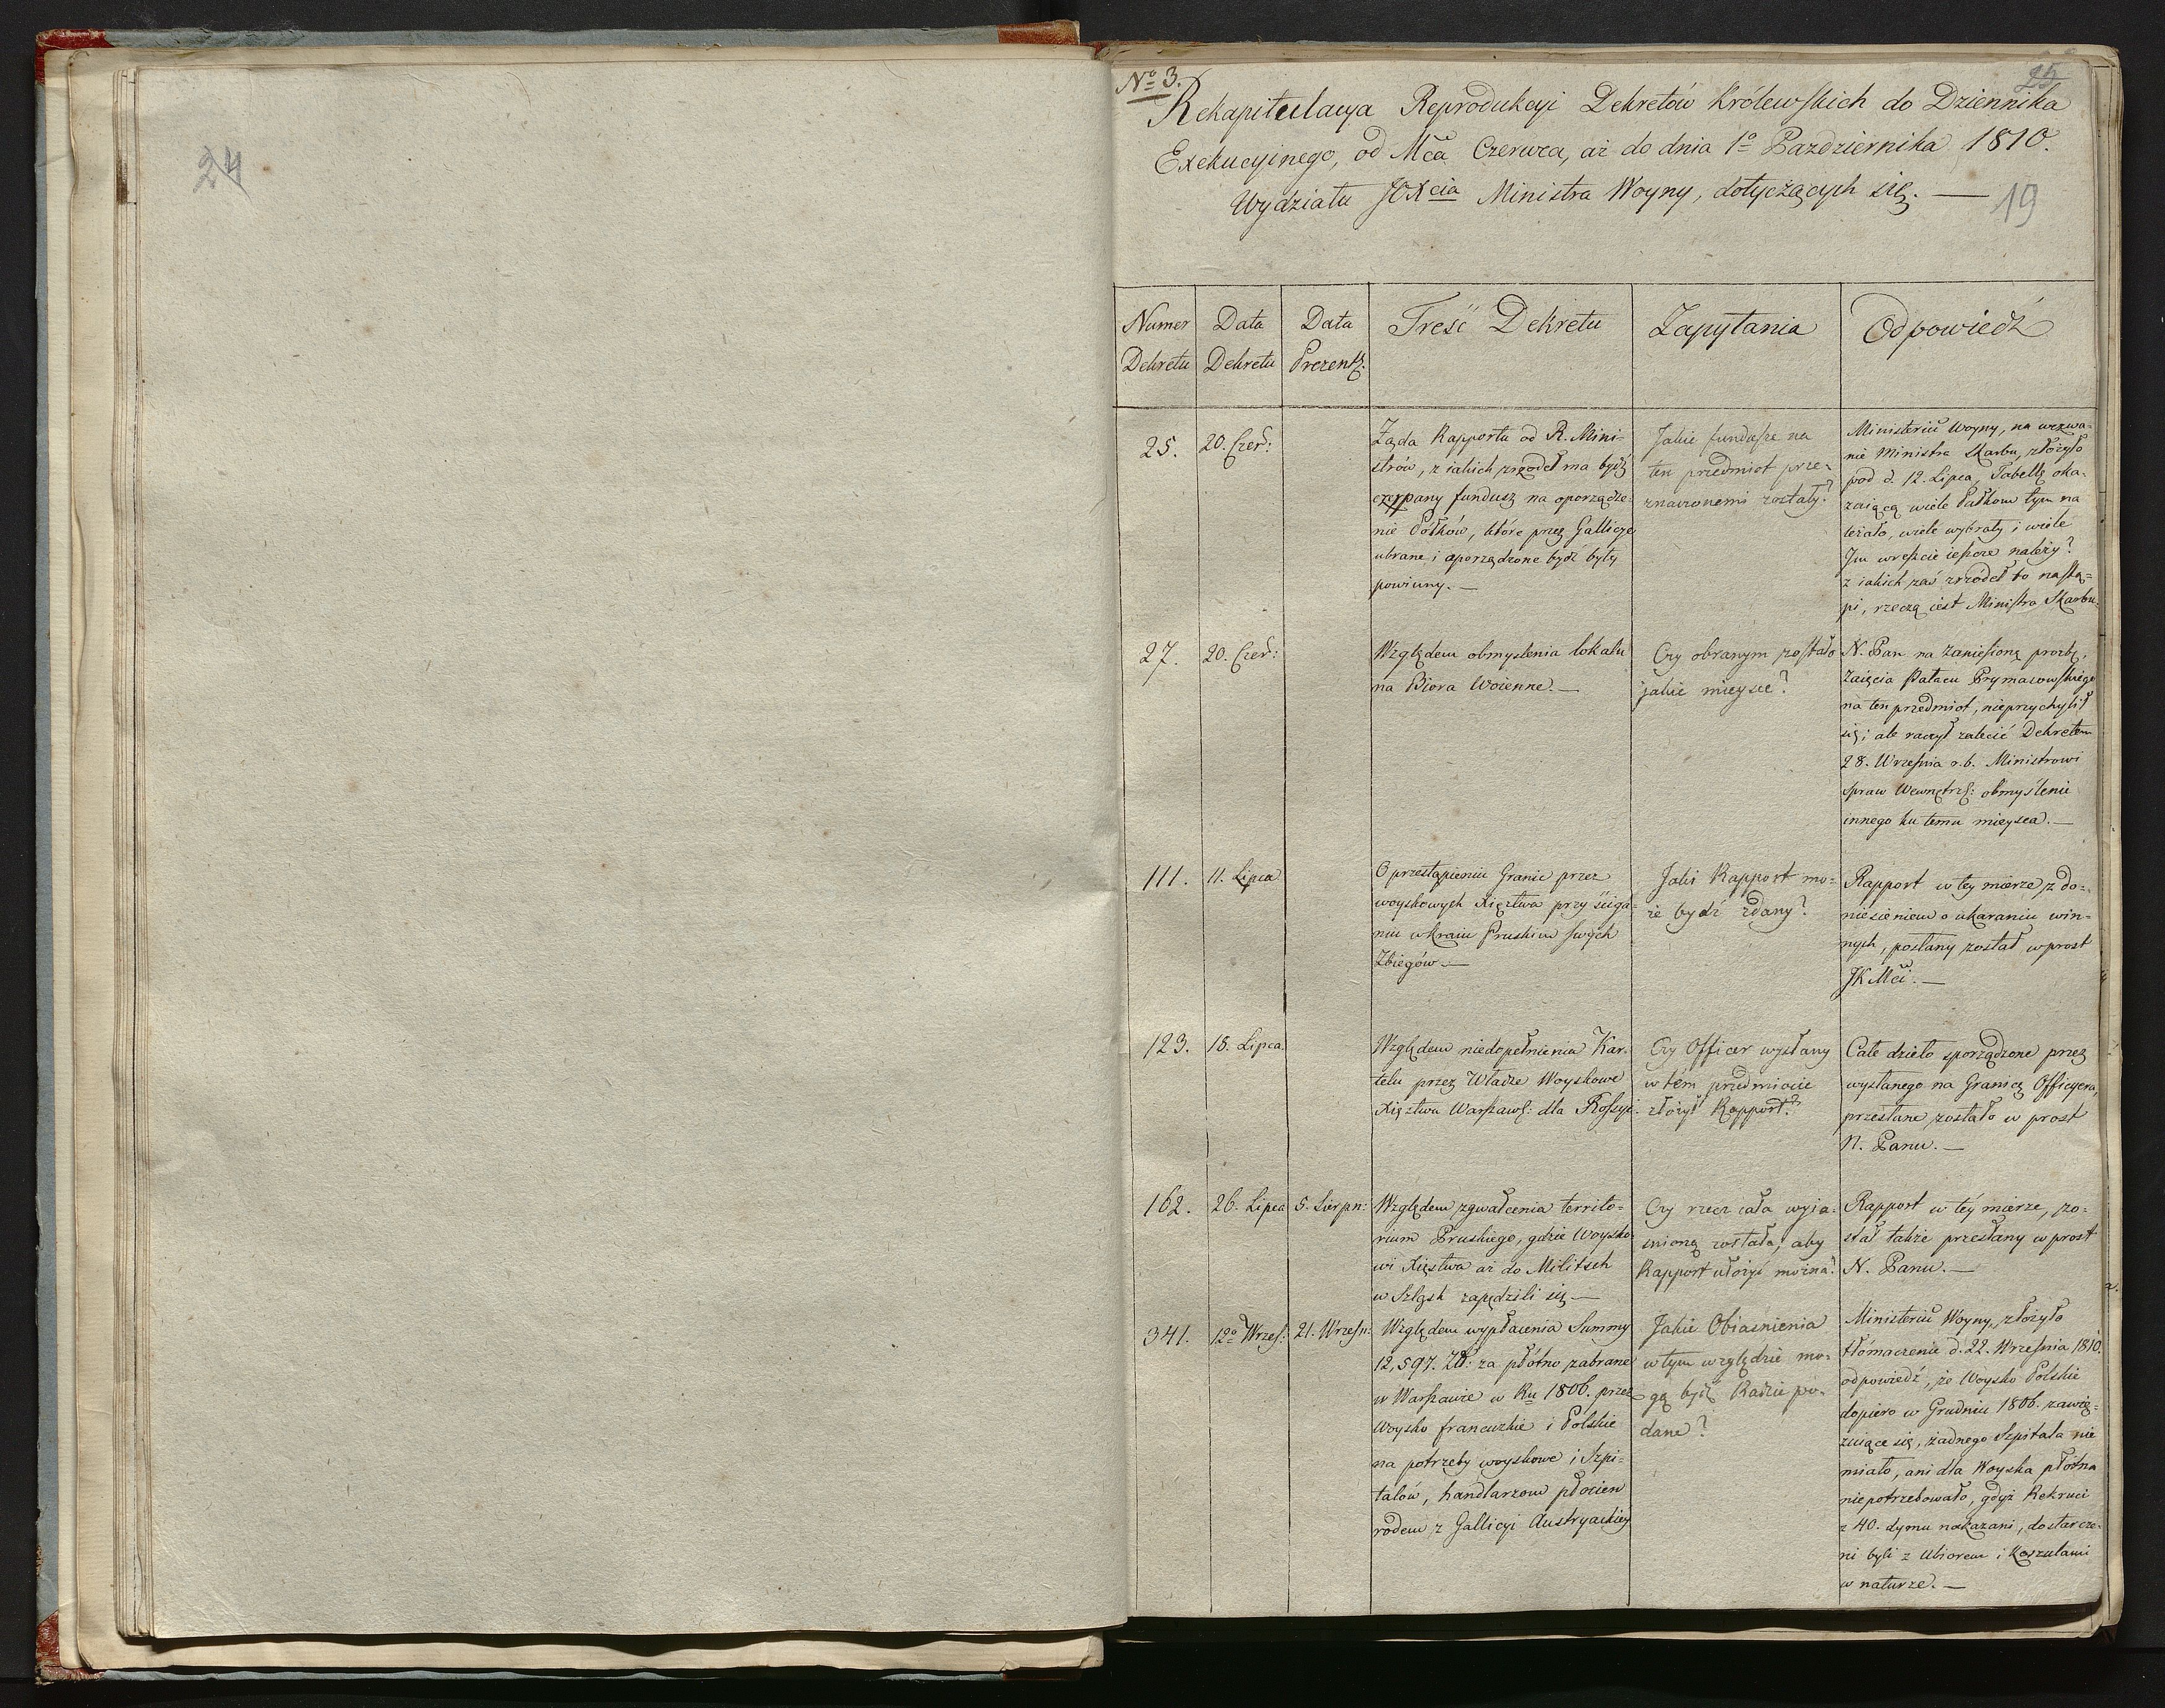 24
Nº 3.
25
Rekapitulacya Reprodukcyi Dekretów Królewskich do Dziennika
Exekucyinego, od Mca Czerwca, aż do dnia 1º Pazdziernika 1810.
Wydziału JOXcia Ministra Woyny, dotyczących się. —
19
Numer
Dekretu
Data
Dekretu
Data
Prezent:
Treść Dekretu
Zapytania
Odpowiedź
25.
20. Czer:
Żąda Rapportu od R. Mini-
strów, z iakich zrzodeł ma bydź
czerpany fundusz na oporządze-
nie Półków, które przez Gallicye
ubrane i oporządzone bydź były
powinny. —
Jakie fundusze na
ten przedmiot prze-
znaczonemi zostały?
Ministeriũ Woyny, na wezwa-
nie Ministra Skarbu, złożyło
pod d. 12. Lipca, Tabellę oka-
zuiącą wiele Pułkom tym na
leżało, wiele wybrały i wiele
Im wreszcie ieszcze należy?
z iakich zaś zrzódeł to nastą-
pi, rzeczą iest Ministra Skarbu.
27.
20. Czer:
Względem obmyslenia lokalu
na Biora Woienne. —
Czy obranym zostało
jakie mieysce?
N. Pan na zaniesioną prozbę,
zaięcia Pałacu Prymasowskiego
na ten przedmiot, nieprzychylił
się; ale raczył zalecić Dekretem
28. Września r.b. Ministrowi
Spraw Wewnętrz: obmyślenie
innego ku temu mieysca. —
111.
11. Lipca
O przestąpieniu Granic przez
woyskowych Xięztwa przy ściga-
niu w kraiu Pruskim swych
Zbiegów. —
Jaki Rapport mo-
że bydź zdany?
Rapport w tey mierze z do-
niesieniem o ukaraniu win-
nych, posłany został wprost
JKMci. —
123.
18. Lipca.
Względem niedopełnienia Kar-
telu przez Władze Woyskowe
Xięztwa Warszaws: dla Rossyi.
Czy Officer wysłany
w tém przedmiocie
złożył Rapport?
Całe dzieło sporządzone przez
wysłanego na Granicę Officyera,
przesłane zostało w prost
N. Panu. —
162.
26. Lipca
5. Sierpn:
Względem zgwałcenia territo-
rium Pruskiego, gdzie Woysko-
wi Xięstwa aż do Militsch
w Szląsk zapędzili się —
Czy rzecz cała wyja-
snioną została, aby
Rapport ułożyć można?
Rapport w téy mierze, zo-
stał także przesłany wprost
N. Panu. —
341.
12º Wrześ:
21. Wrześn:
Względem wypłacenia Summy
12,597. Zł: za płótno zabrane
w Warszawie w Ru 1806. przez
Woysko francuzkie i Polskie
na potrzeby woyskowe i Szpi-
talów, handlarzom płocien
rodem z Gallicyi Austryackiey
Jakie Obiasnienia
w tym względzie mo-
gą bydź Radzie po-
dane?
Ministeriũ Woyny, złożyło
tłómaczenie d. 22. Września 1810.
odpowiedź, że Woysko Polskie
dopiero w Grudniu 1806. zawię-
zuiące się, żadnego Szpitala nie
miało, ani dla Woyska płótna
niepotrzebowało, gdyż Rekruci
z 40. dymu nakazani, dostarcze-
ni byli z Ubiorem i Koszulami
w naturze. —